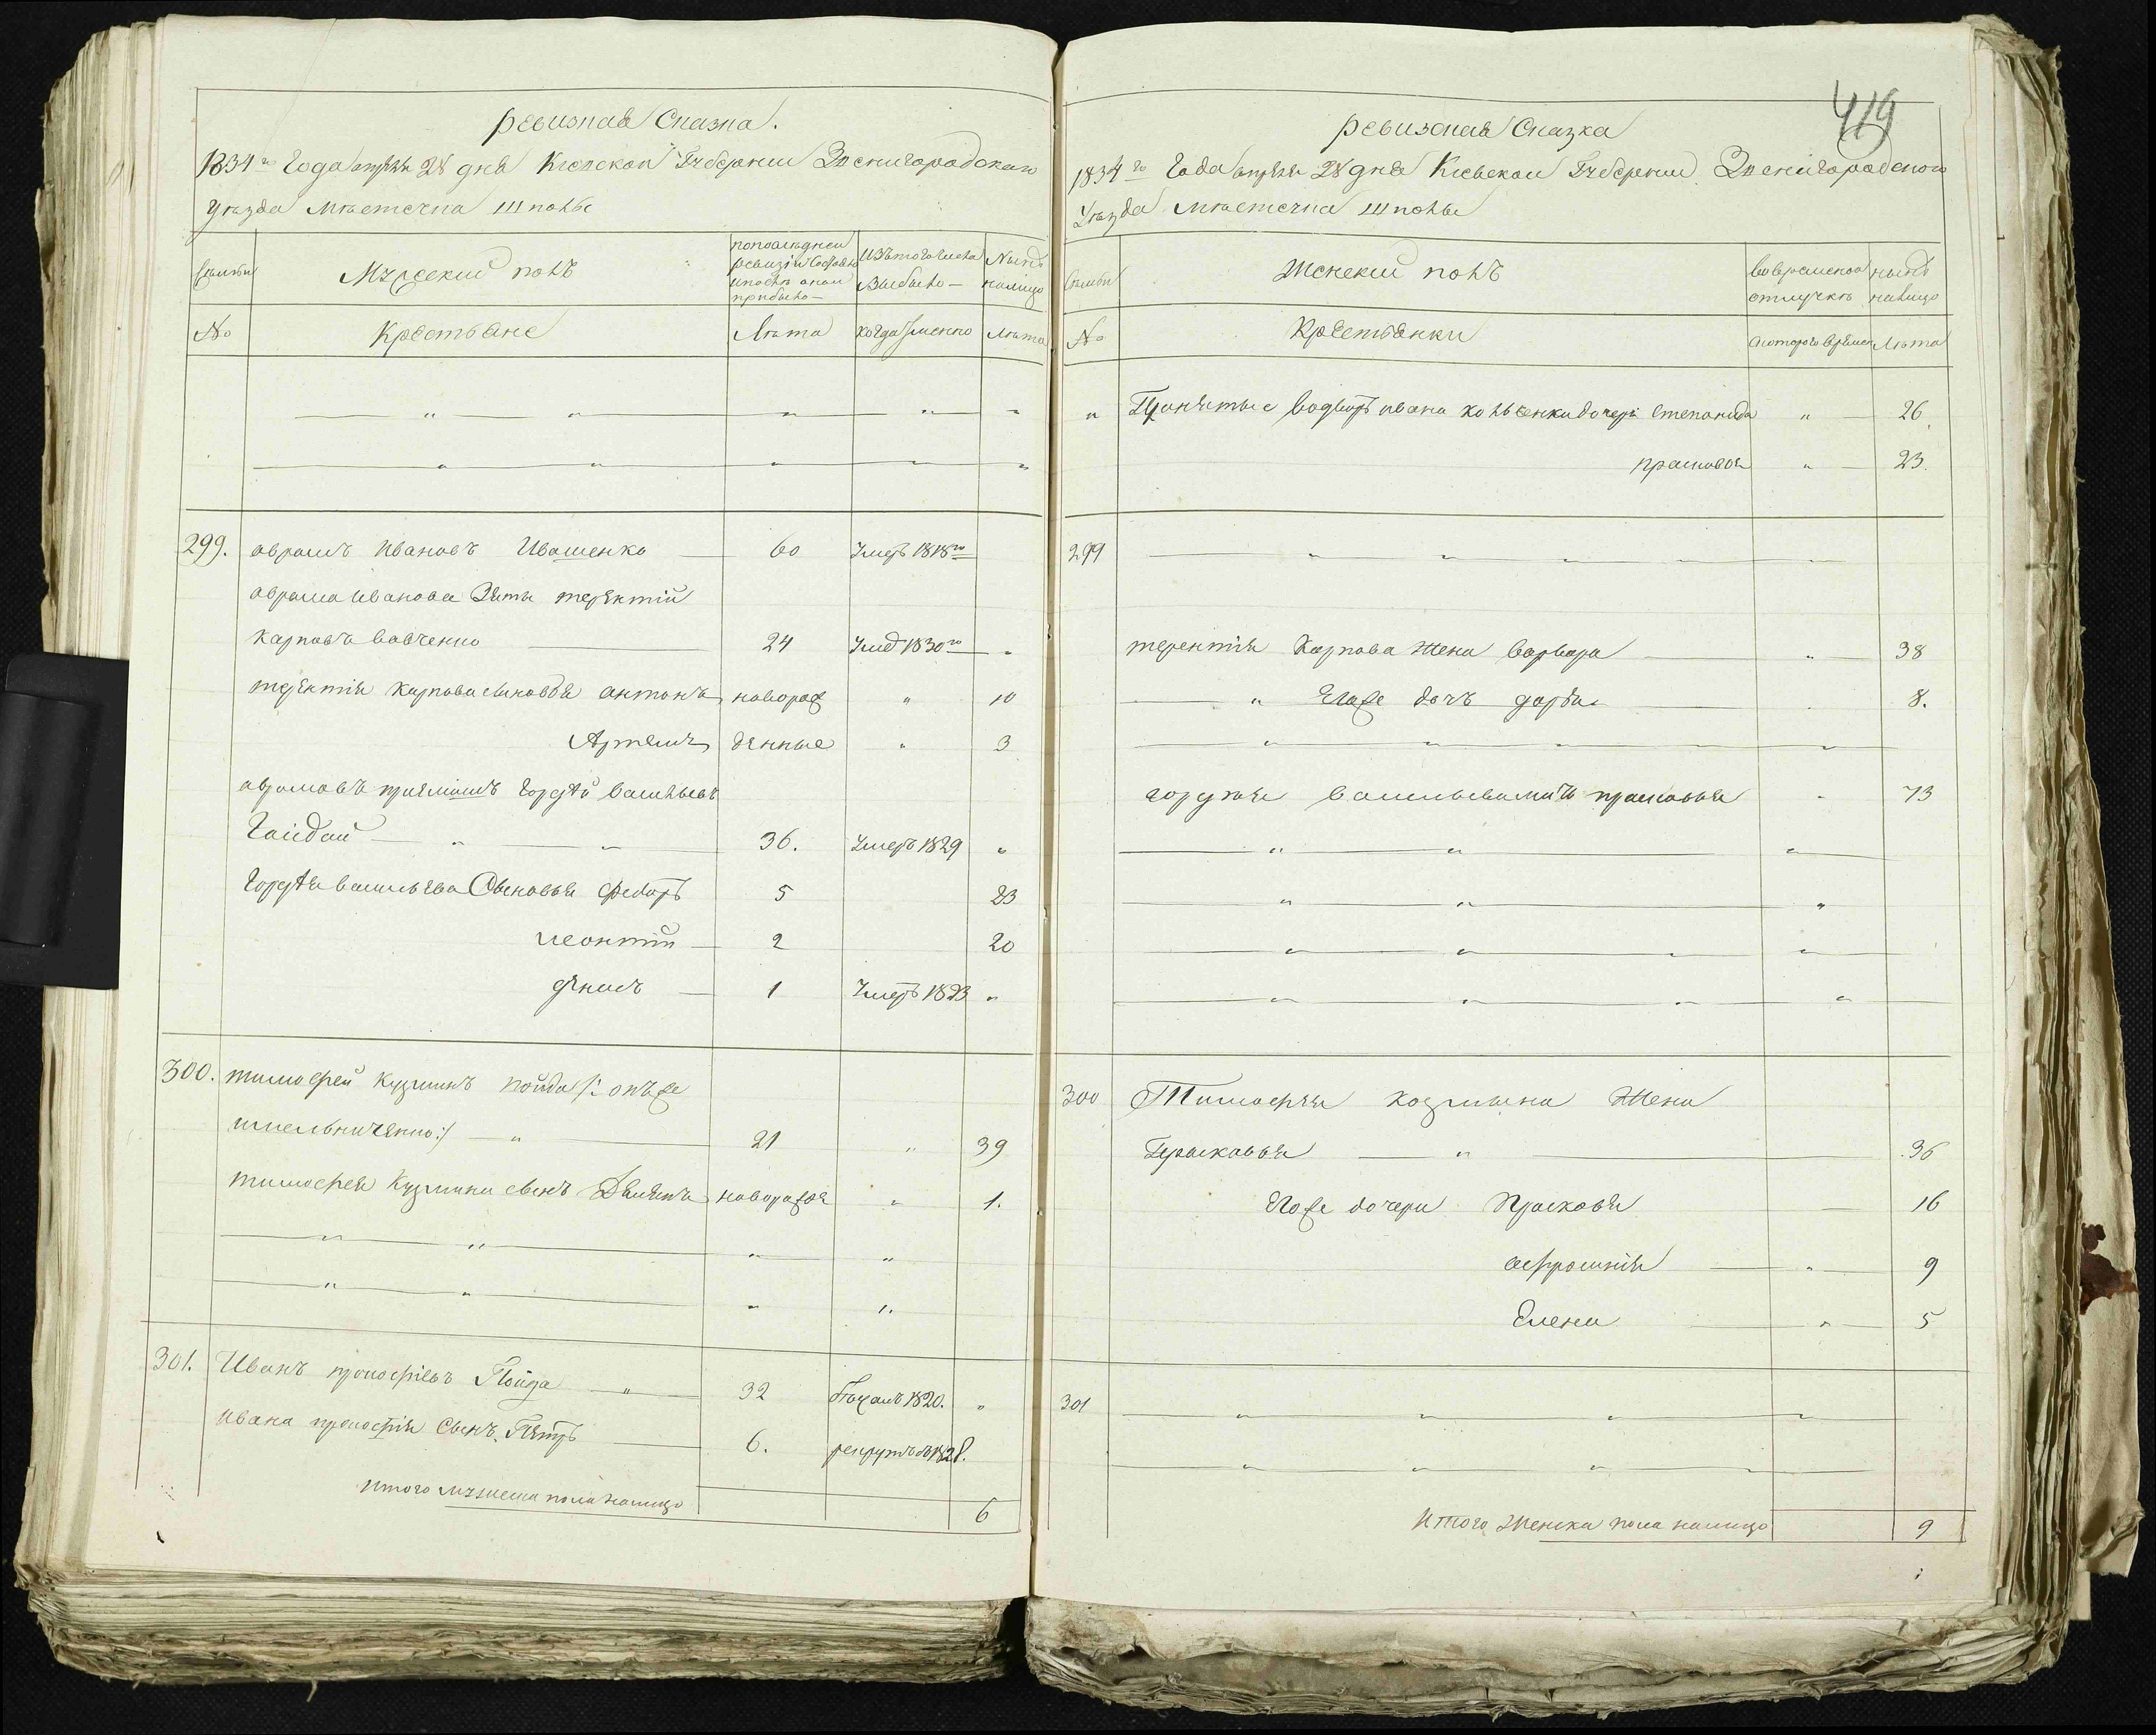 ревизная Сказка.
1834го Года апреля 28 дня Киевской Губернии Звенигородскаго
Уезда Местечка Шполы
Семьи
Мужеский полъ
попоследней
ревизіи Состояло
ипосле оной
прибыло
Изътогочисла
Выбыло
Ныне
налицо
№
Крестьяне
Лета
когда Именно
Лета
299. аврамъ Ивановъ Ивашенко 60 Умеръ 1818го
аврама Иванова Зять терентій
Карповъ вовченко 24 Умер 1830го
терентія Карпова сыновья антонъ новорож 10
Артемъ денные 3
аврамовъ приемышъ Гордей Васильевъ
Гайдай 36. Умеръ 1829
Гордея васильева Сыновья Федоръ 5 23
леонтій 2 20
денисъ 1 Умеръ 1823
300. тимофей Кузминъ пойда /: онъже
мельниченко :/ 21 39
тимофея Кузмина сынъ Демянъ новорожде 1.
301. Иванъ прокофіевъ Пойда 32 Бежалъ 1820.
Ивана прокофія Сынъ Петръ 6. рекрутъ въ 1828.
Итого мужеска пола налицо 6
419
ревизская Сказка
1834го Года апреля 28 дня Киевской Губернии Звенигородскаго
Уезда Местечка Шполы
Семьи
Женский полъ
Вовременной
отлучке
ныне
налицо
№
Крестьянки
Скоторого времен
Лета
Принятые водворъ ивана дочери Степанида 26
прасковья 23.
299
терентія Карпова Жена варвара 38
Егоже дочь дарья 8.
гордея васильева мать прасковья 73
300 Тимофея козмина Жена
Прасковья 36
Егоже дочери Прасковья 16
афросинія 9
Елена 5
301
Итого Женска пола налицо 9